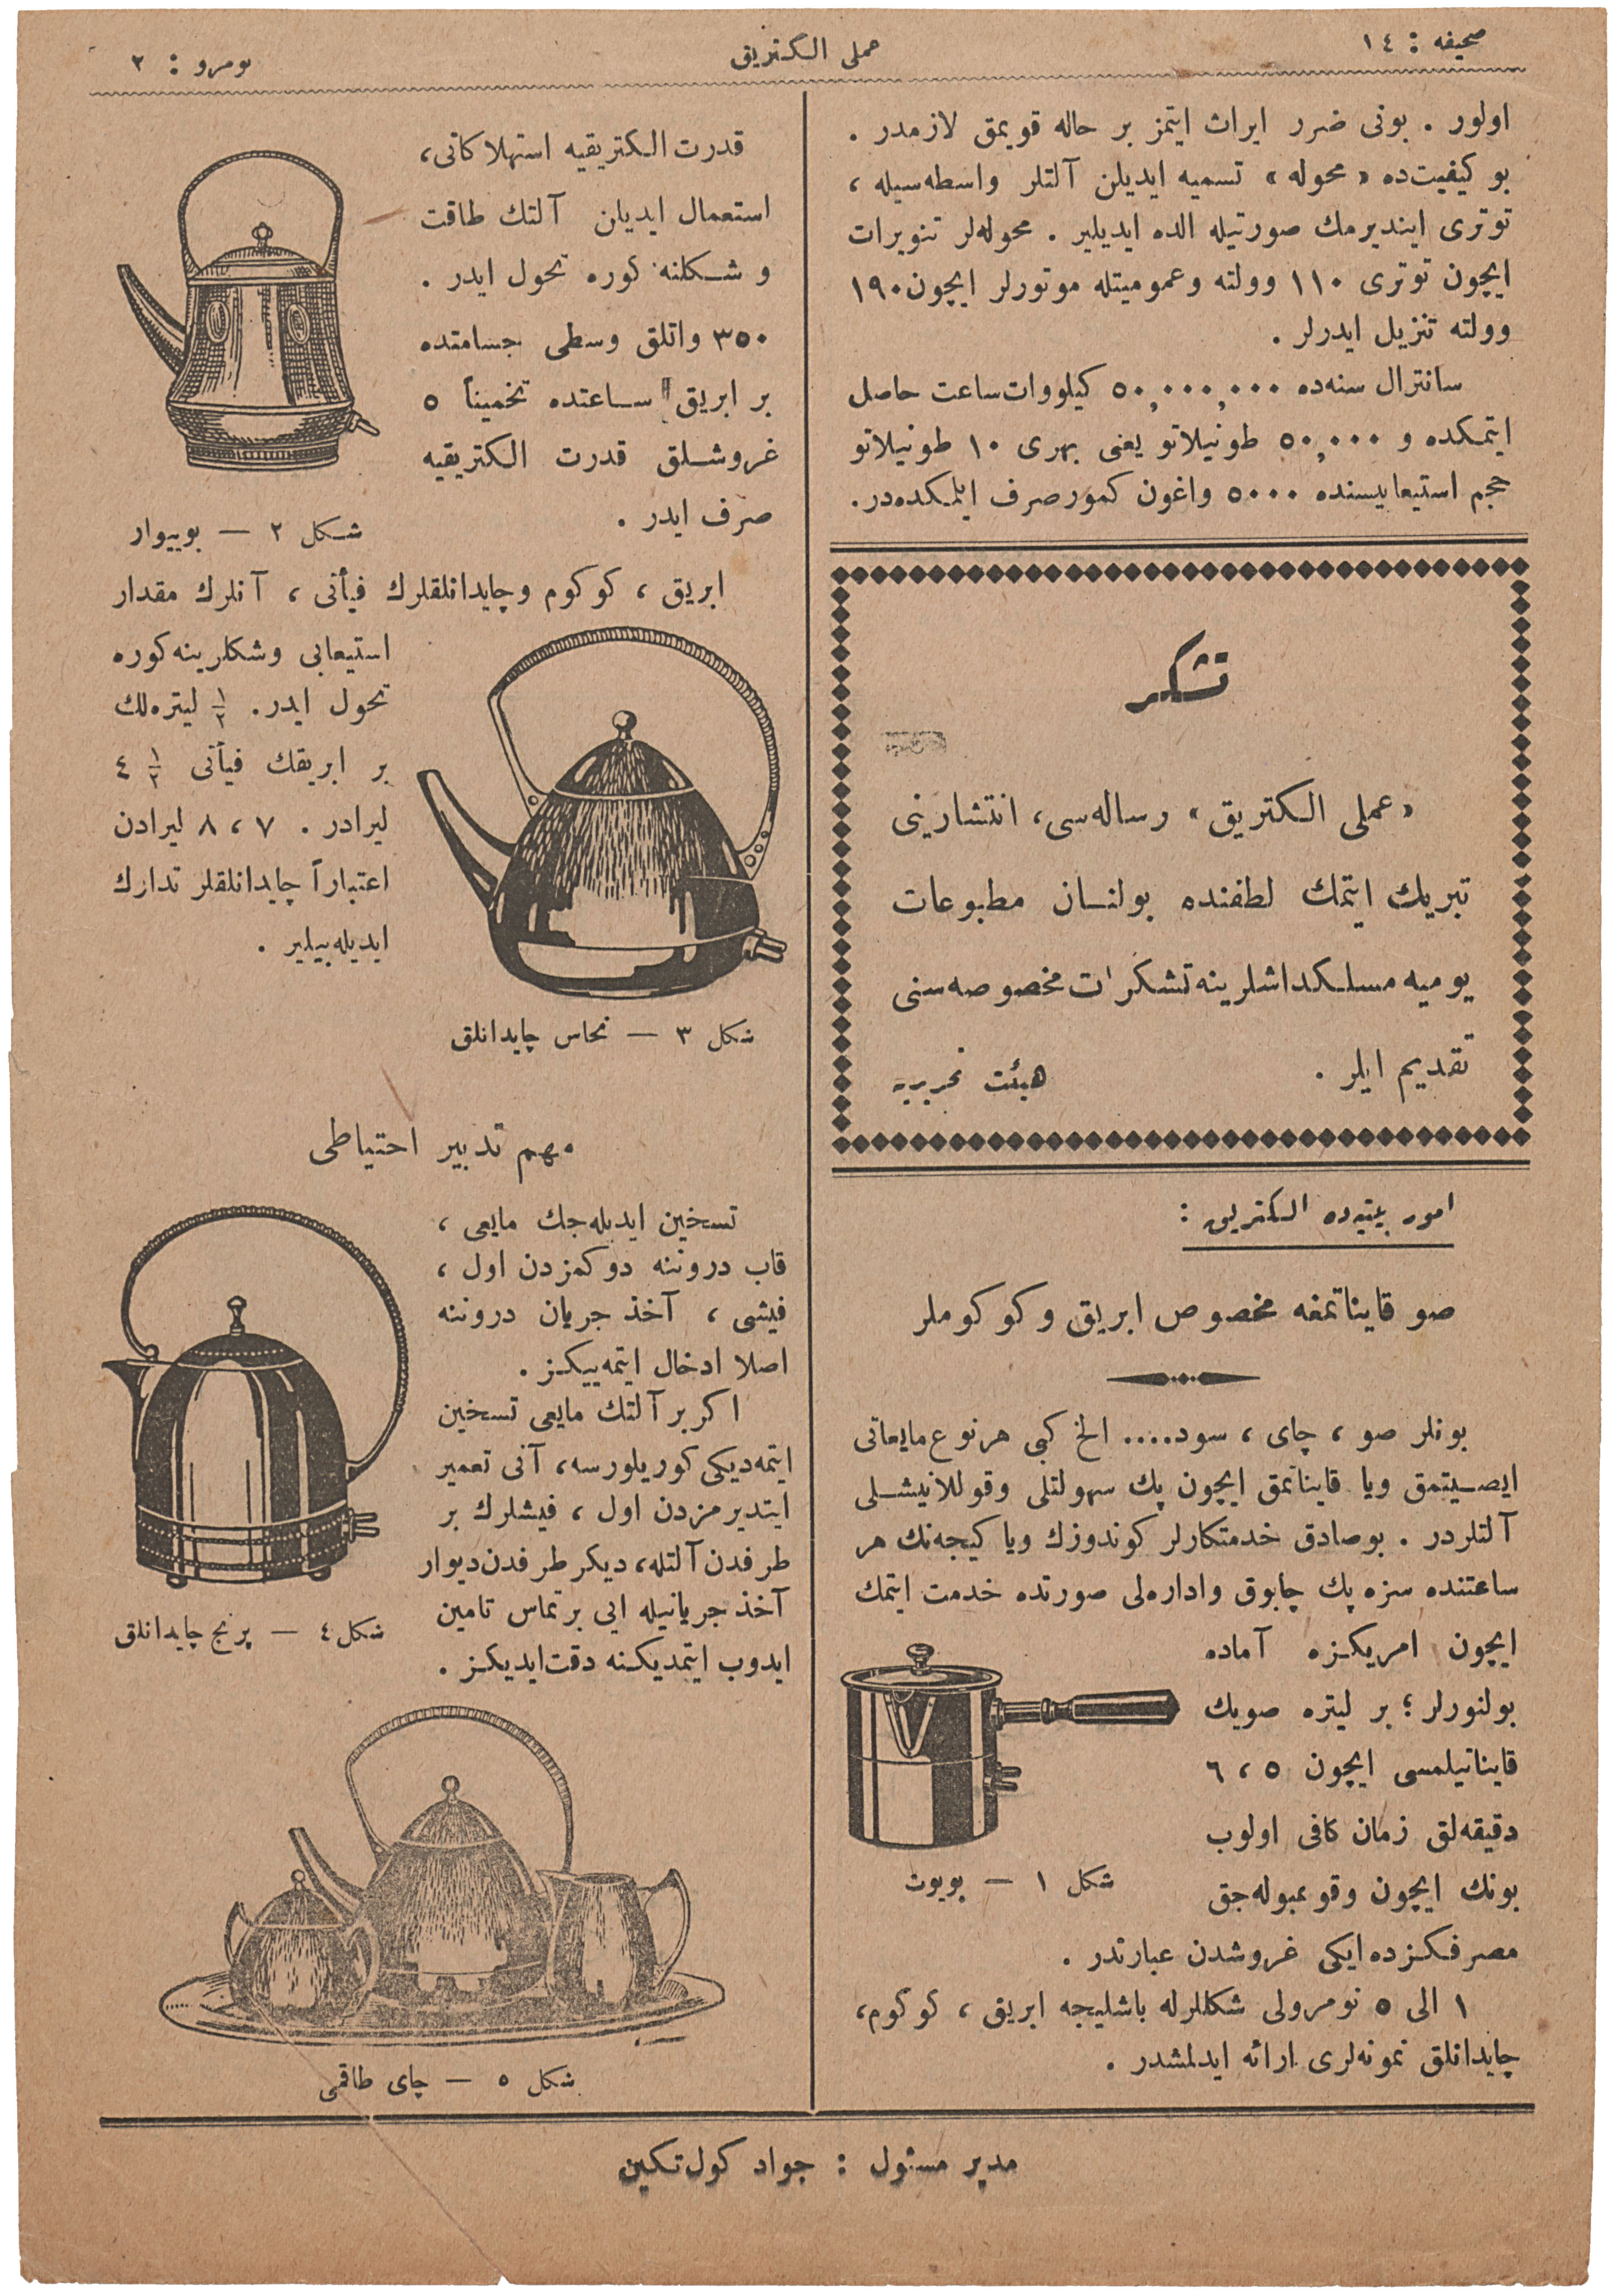 صحيفه : ١٤
عملى الكتريق
نومرو : ٢
اولور . بونى ضرر ايراث ايتمز بر حاله قويمق لازمدر .
بو كيفيت‌ده «محوله» تسميه ايديلن آلتلر واسطه‌سيله ،
توترى اينديرمك صورتيله الده ايديلير . محوله‌لر تنويرات
ايچون توترى ١١٠ وولته وعموميتله موتورلر ايچون ١٩٠
وولته تنزيل ايدرلر .
سانترال سنه‌ده ٥٠,٠٠٠,٠٠٠ كيلووات‌ساعت حاصل
ايتمكده و ٥٠,٠٠٠ طونيلاتو يعنى بهرى ١٠ طونيلاتو
حجم استيعابيسنده ٥٠٠٠ واغون كمور صرف ايلمكده‌در.
تشكر
«عملى الكتريق» رساله‌سى، انتشارينى
تبريك ايتمك لطفنده بولنان مطبوعات
يوميه مسلكداشلرينه تشكرات مخصوصه‌سنى
تقديم ايلر . هيئت تحريريه
امور بيتيه‌ده الكتريق :
صو قايناتمغه مخصوص ابريق و كوكوملر
بونلر صو ، چاى ، سود.... الخ كبى هرنوع مايعاتى
ايصيتمق ويا قايناتمق ايچون پك سهولتلى وقوللانيشلى
آلتلردر . بوصادق خدمتكارلر كوندوزك ويا كيجه‌نك هر
ساعتنده سزه پك چابوق واداره‌لى صورتده خدمت ايتمك
ايچون امريكزه آماده
بولنورلر ؛ بر ليتره صويك
قايناتيلمسى ايچون ٥ ، ٦
دقيقه‌لق زمان كافى اولوب
بونك ايچون وقوعبوله‌جق
مصرفكزده ايكى غروشدن عبارتدر .
شكل ١ — بويوت
١ الى ٥ نومرولى شكللرله باشليجه ابريق ، كوكوم،
چايدانلق نمونه‌لرى ارائه ايدلمشدر .
قدرت الكتريقيه استهلاكاتى،
استعمال ايديلن آلتك طاقت
و شكلنه كوره تحول ايدر .
٣٥٠ واتلق وسطى جسامتده
بر ابريق ساعتده تخميناً ٥
غروشلق قدرت الكتريقيه
صرف ايدر .
شكل ٢ — بوييوار
ابريق ، كوكوم وچايدانلقلرك فيأتى ، آنلرك مقدار
استيعابى وشكلرينه كوره
تحول ايدر. ١/٢ ليتره‌لك
بر ابريقك فيأتى ٤ ١/٢
ليرادر . ٧ ، ٨ ليرادن
اعتباراً چايدانلقلر تدارك
ايديله‌بيلير .
شكل ٣ — نحاس چايدانلق
مهم تدبير احتياطى
تسخين ايديله‌جك مايعى ،
قاب دروننه دوكمزدن اول ،
فيشى ، آخذ جريان دروننه
اصلا ادخال ايتمه‌ييكز .
اكر بر آلتك مايعى تسخين
ايتمه‌ديكى كوريلورسه، آنى تعمير
ايتديرمزدن اول ، فيشلرك بر
طرفدن آلتله، ديكر طرفدن ديوار
آخذ جريانيله ايى بر تماس تامين
ايدوب ايتمديكنه دقت ايديكز .
شكل ٤ — پرنج چايدانلق
شكل ٥ — چاى طاقمى
مدير مسئول : جواد كول تكين